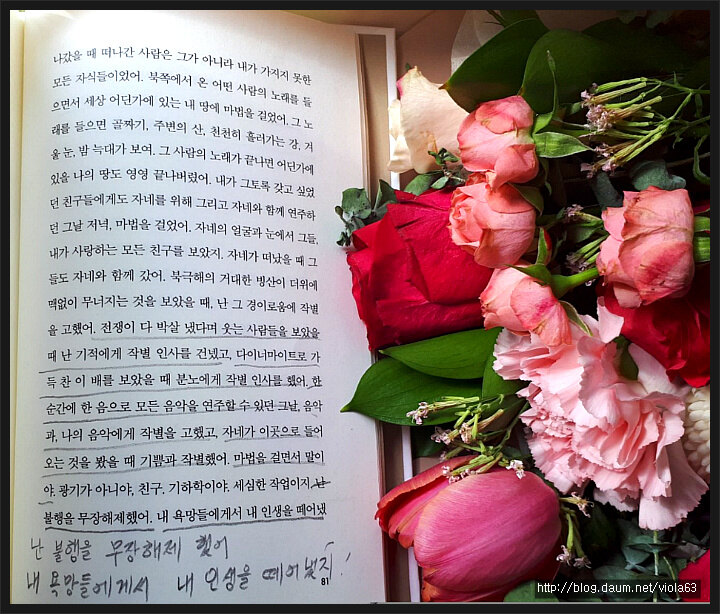 나갔을 때 떠나간 사람은 그가 아니라 내가 가지지 못한
모든 자식들이었어. 북쪽에서 온 어떤 사람의 노래를 들
으면서 세상 어딘가에 있는 내 땅에 마법을 걸었어. 그 노
래를 들으면 골짜기, 주변의 산, 천천히 흘러가는 강, 겨
울 눈, 밤 늑대가 보여. 그 사람의 노래가 끝나면 어딘가에
있을 나의 땅도 영영 끝나버렸어. 내가 그토록 갖고 싶었
던 친구들에게도 자네를 위해 그리고 자네와 함께 연주하
던 그날 저녁, 마법을 걸었어. 자네의 얼굴과 눈에서 그들,
내가 사랑하는 모든 친구를 보았지. 자네가 떠났을 때 그
들도 자네와 함께 갔어. 북극해의 거대한 빙산이 더위에
맥없이 무너지는 것을 보았을 때, 난 그 경이로움에 작별
을 고했어. 전쟁이 다 박살 냈다며 웃는 사람들을 보았을
때 난 기적에게 작별 인사를 건넸고, 다이너마이트로 가
득 찬 이 배를 보았을 때 분노에게 작별 인사를 했어. 한
순간에 한 음으로 모든 음악을 연주할 수 있던 그날, 음악
과, 나의 음악에게 작별을 고했고, 자네가 이곳으로 들어
오는 것을 봤을 때 기쁨과 작별했어. 마법을 걸면서 말이
야. 광기가 아니야, 친구. 기하학이야. 세심한 작업이지. 난
불행을 무장해제했어. 내 욕망들에게서 내 인생을 떼어냈
난 불행을 무장해제 했어
내 욕망들에게서 내 인생을 떼어냈지!
81
http://blog.daum.net/viola63